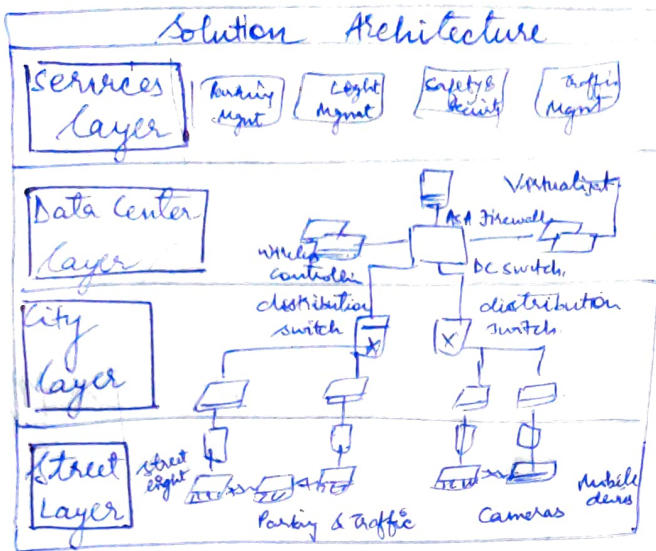 Solution Architecture
Services Layer
Parking Mgnt
Light Mgmat
Safety & Security
Traffic Mgmt
Data Center Layer
Wireless controller
ASA Firewall
DC switch.
City Layer
distribution switch
distribution switch.
Street Layer
street light
Parking & Traffic
Cameras
Mobile